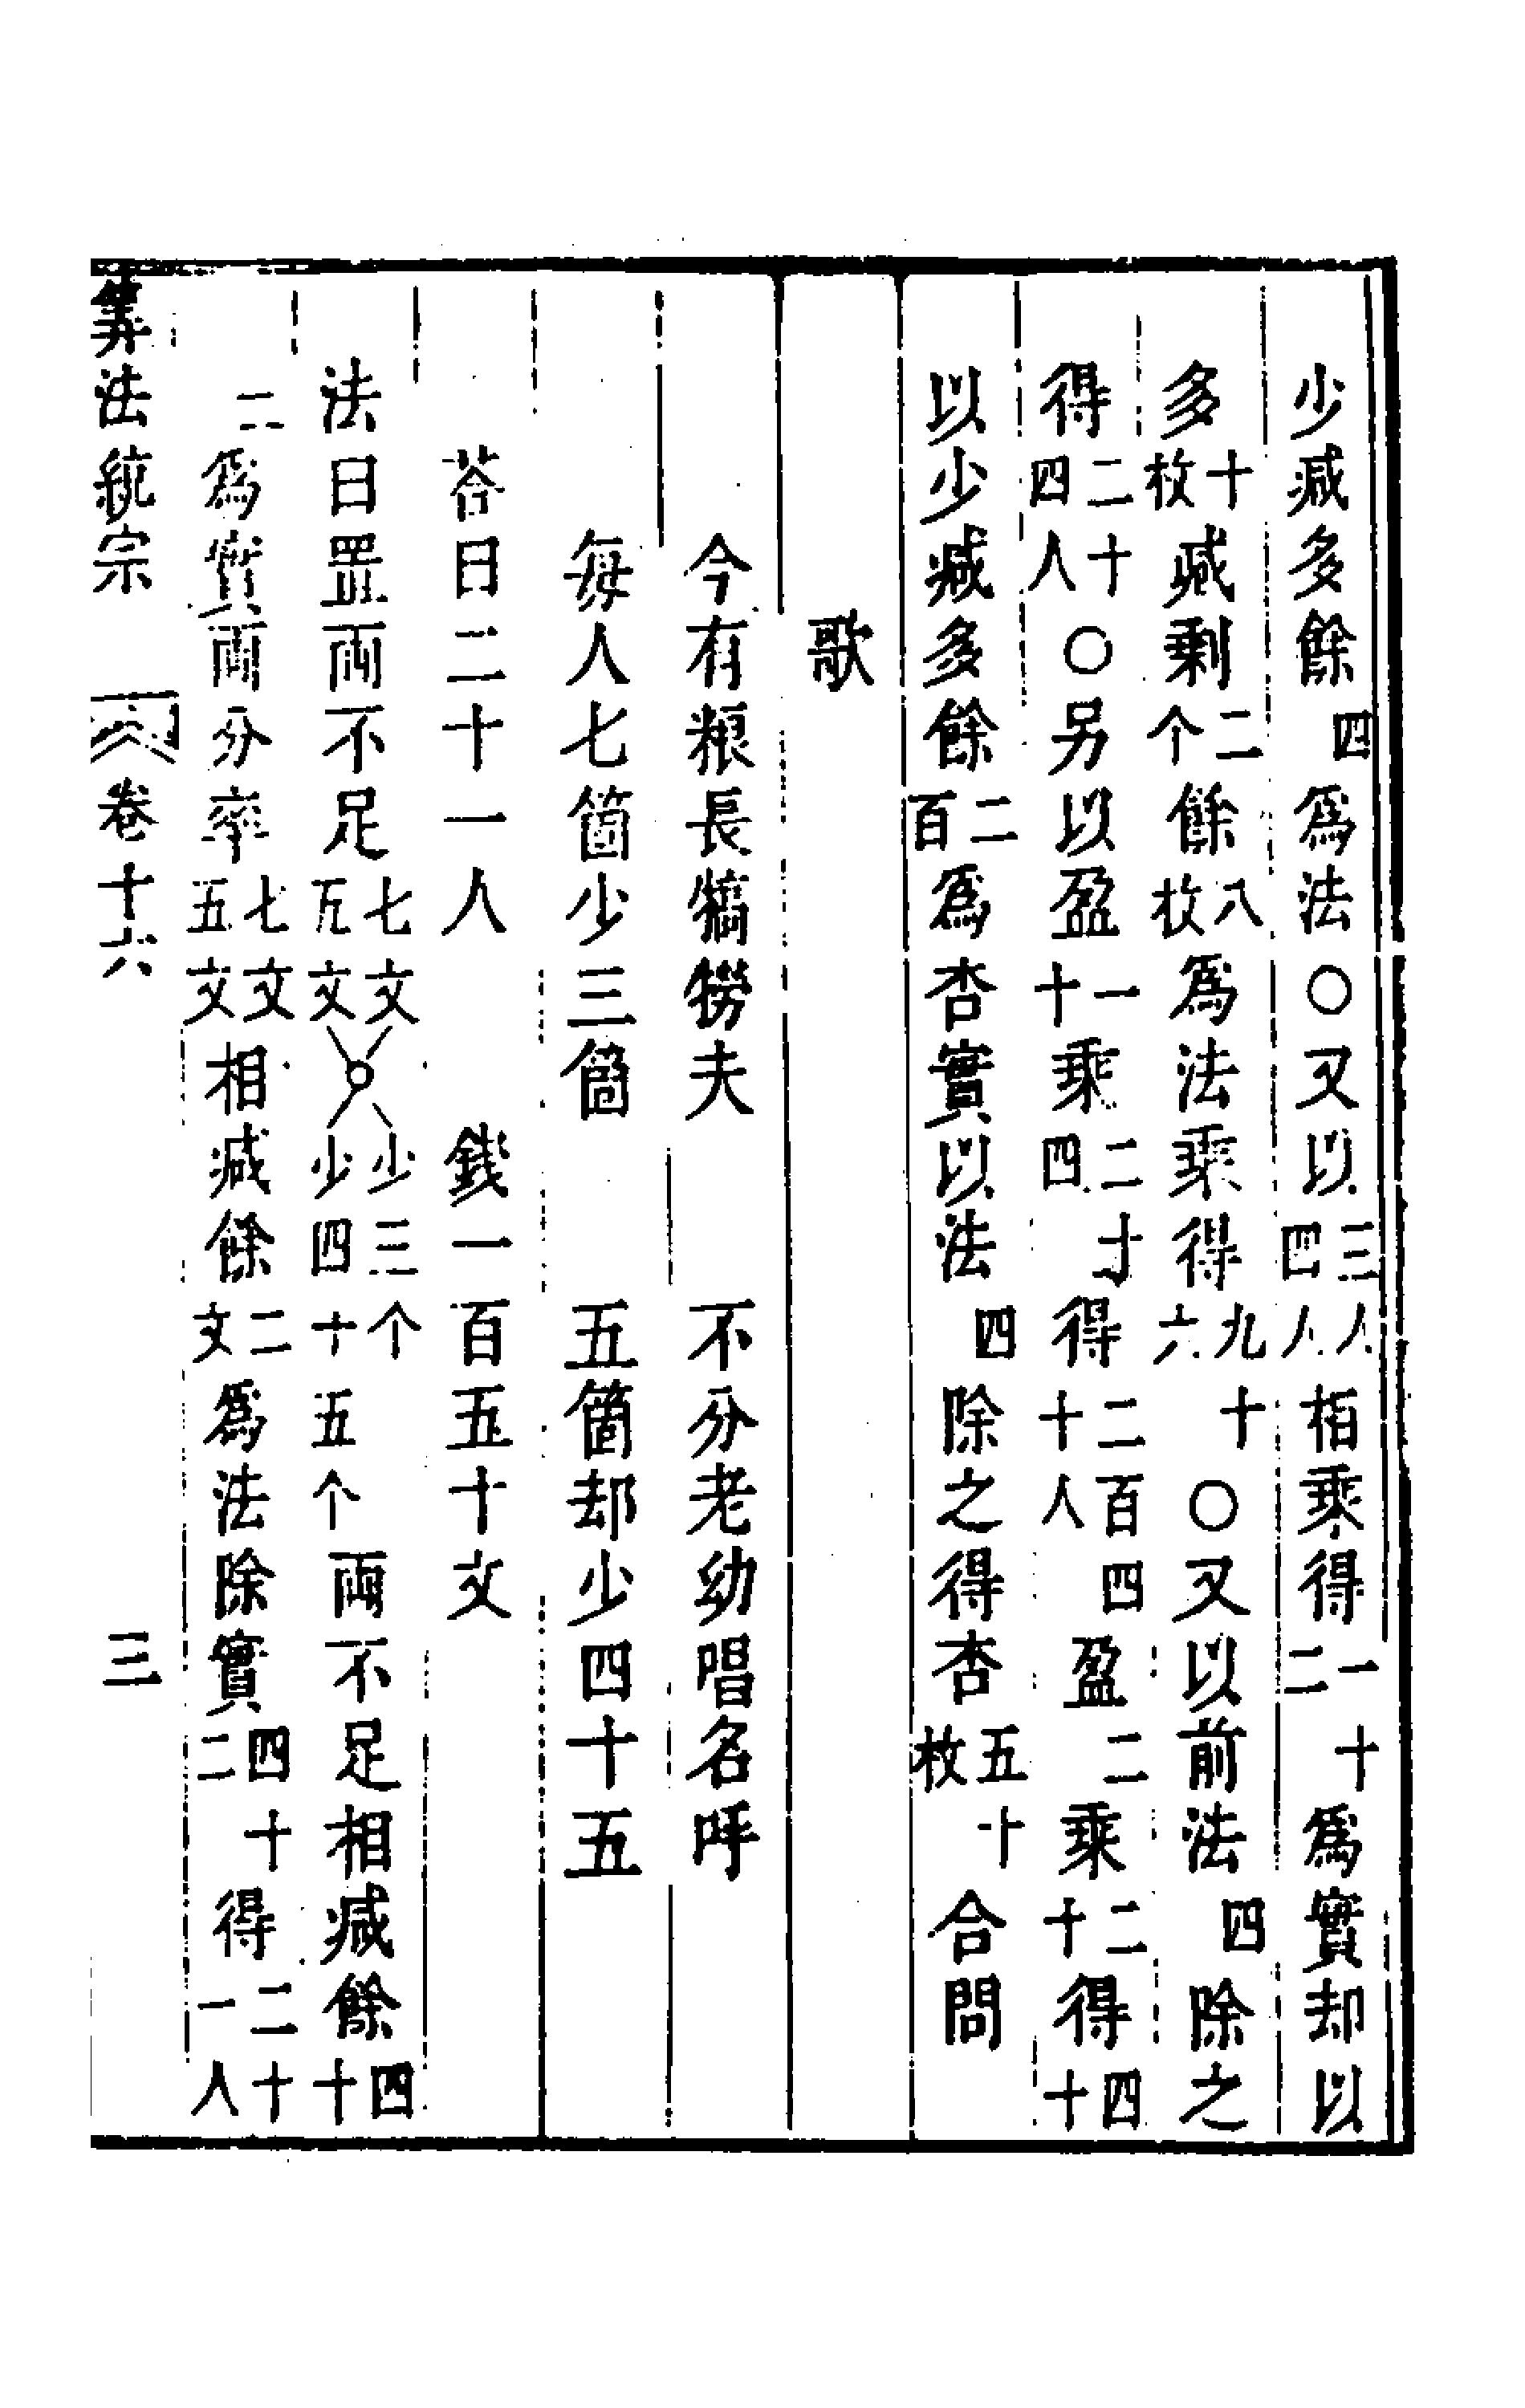 少减多餘四爲法〇又以三人四人相乘得一十二爲實却以
多十枚减剩二个餘八枚爲法乘得九十六〇又以前法四除之
得二十四人〇另以盈一十乘二十四得二百四十人盈二乘二十得四十
以少减多餘二百爲杏實以法四除之得杏五十枚合問
歌
今有粮長犒㹎夫　不分老幼唱名呼
每人七箇少三箇　五箇却少四十五
荅曰二十一人　錢一百五十文
法曰置兩不足七文五文少三个少四十五个兩不足相减餘四十
二爲實兩分率七文五文相减餘二文爲法除實四十二得二十一人
筭法統宗　卷十六　三